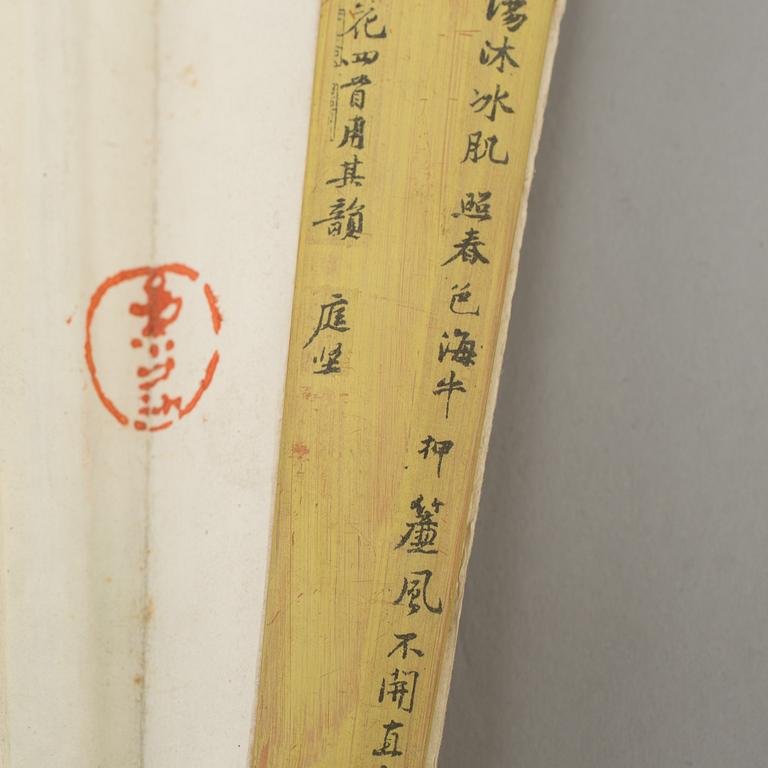 湯沐冰肌照春色海牛押簾風不開直
花四首用其韻 庭坚